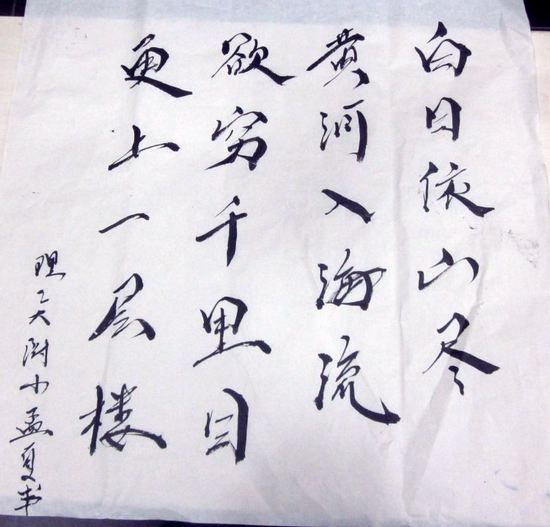 白日依山尽
黄河入海流
欲穷千里目
更上一层楼
理工大附小孟夏书